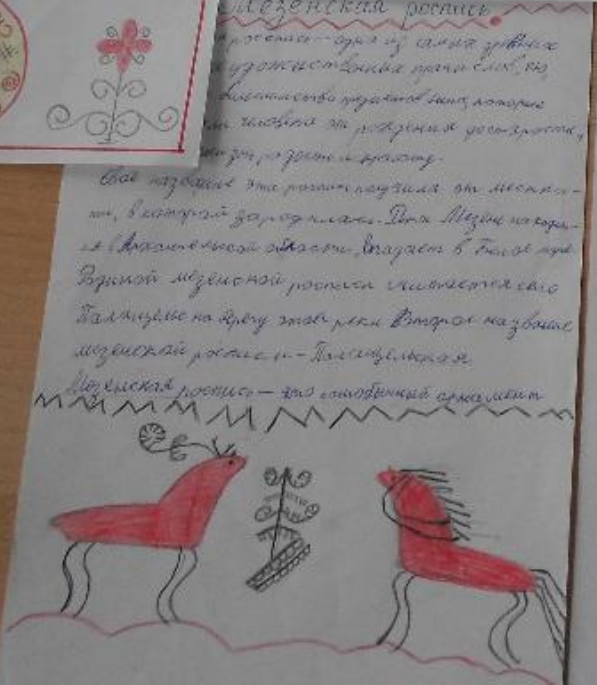 Мезенская роспись.
роспись – одна из самых древних
художественных промыслов, ею
человека от рождения до старости,
радость и красоту.
Своё название эта роспись получила от местнос-
ти, в которой зародилась. Река Мезень находит-
ся в Архангельской области, впадает в Белое море
Родиной мезенской росписи считается село
Палащелье на берегу этой реки Второе название
мезенской росписи – Палащельская
Мезенская роспись – это самобытный орнамент